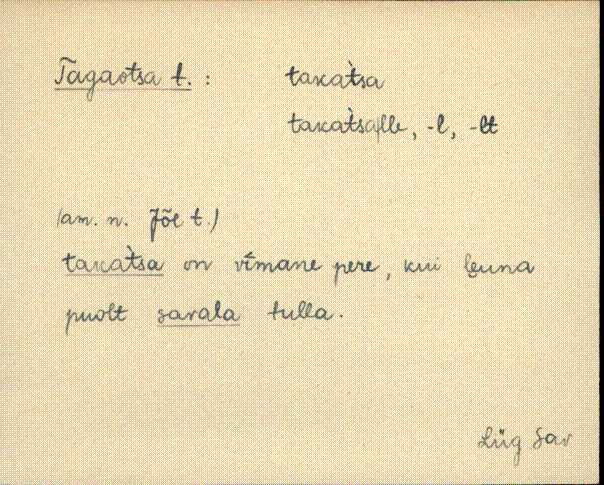 Tagaotsa t. : takat̀sa
takat̀salle, -l, -lt
(am. n. Jõe t.)
takat̀sa on vīmane pere, kui leuna
puolt savala tulla.
Lüg Sav